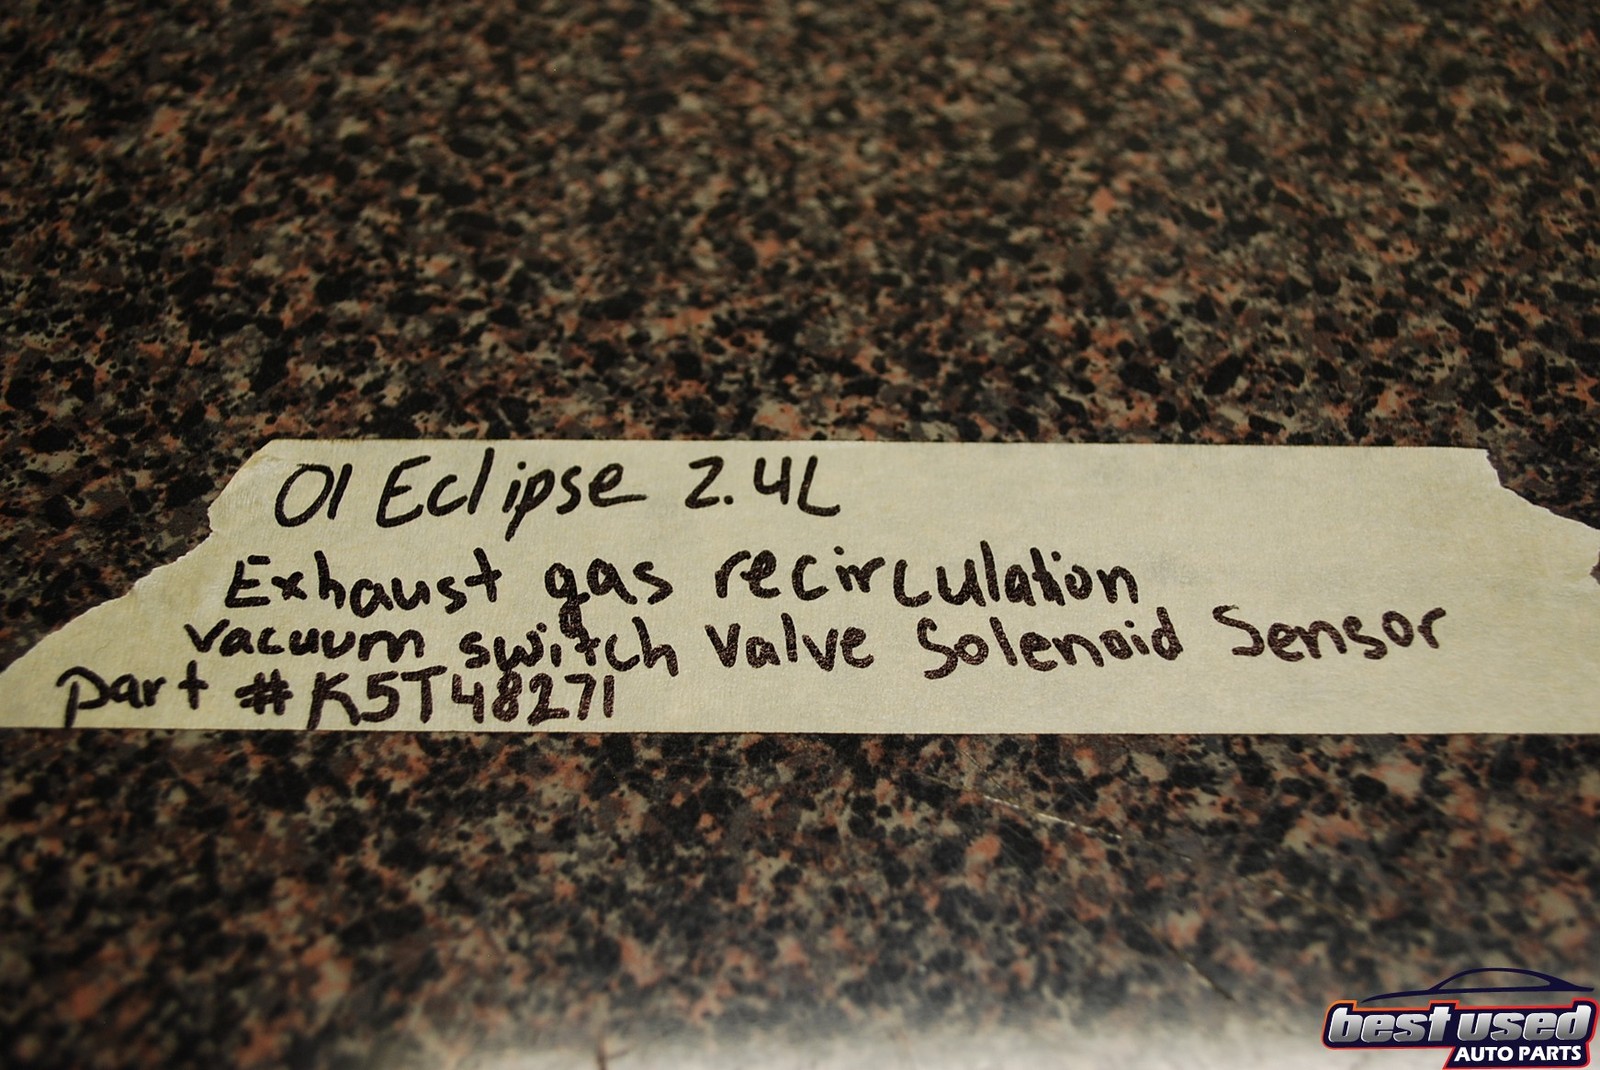 01 Eclipse 2.4L
Exhaust gas recirculation
vacuum switch valve Solenoid Sensor
part #K5T48271
best used
AUTO PARTS